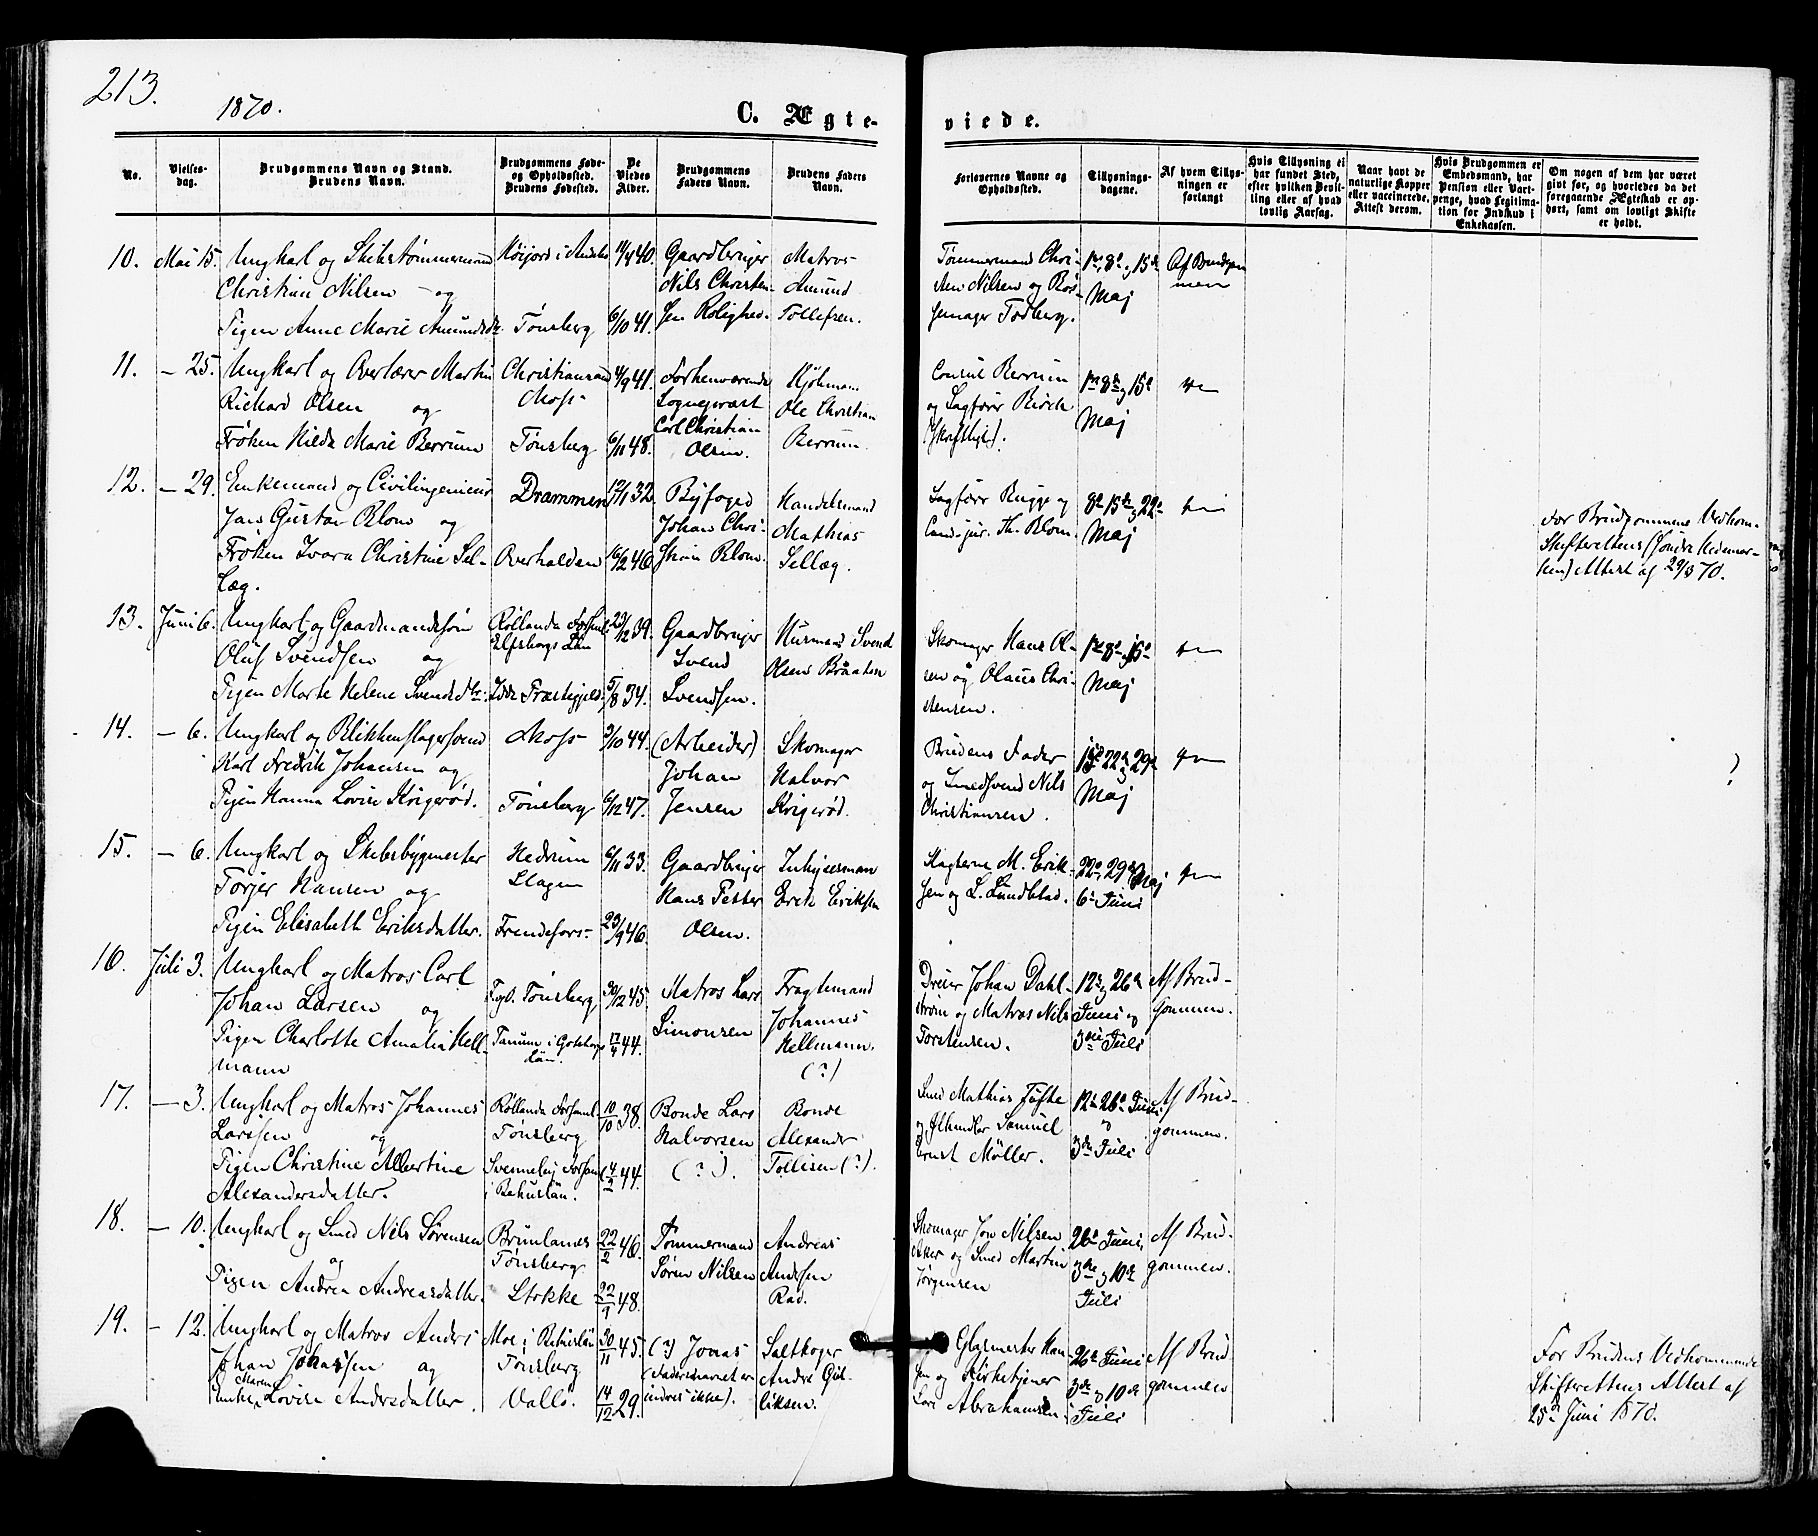 213.
1870.
C. Ægte-
viede.
No.
Vielses-
dag.
Brudgommens Navn og Stand.
Brudens Navn.
Brudgommens Føde-
og Opholdssted.
Brudens Fødested.
De
Viedes
Alder.
Brudgommens
Faders Navn.
Brudens Faders
Navn.
Forlovernes Navne og
Opholdssted.
Tillysnings-
dagene.
Af hvem Tillys-
ningen er
forlangt
Hvis Tillysning ei
har fundet Sted,
efter hvilken Bevil-
ling eller af hvad
lovlig Aarsag.
Naar havt de
naturlige Kopper
eller vaccinerede,
Attest derom.
Hvis Brudgommen er
Embedsmand, har
Pension eller Vart-
penge, hvad Legitima-
tion for Indskud i
Enkekassen.
Om nogen af dem har været
givt før, og hvorledes da det
foregaaende Ægteskab er op-
hørt, samt om lovligt Skifte
er holdt.
10. Mai 15.
Ungkarl og Skibstømmermand
Christian Nilsen - og
Pigen Anne Marie Amundsdr.
Høijord i Andebu
Tønsberg
11/4 40.
6/10 41.
Gaardbruger
Nils Christen-
sen Rolighed.
Matros
Amund
Tollefsen.
Tømmermand Chri-
sten Nilsen og
Todberg.
1ste, 8de og 15de
Maj
Af Brudgom-
men
11. - 25.
Ungkarl og Overlærer Martin
Richard Olsen og
Frøken Hilda Marie Berrum
Christiansand
Moss
Tønsberg
4/9 41.
6/11 48.
Forhenværende
Sogneprest
Carl Christian
Olsen.
Kjøbmand
Ole Christian
Berrum.
Consul Berrum
og Sagfører Birch
(skriftligt).
1ste 8de og 15de
Maj
12. - 29.
Enkemand og Civilingeniør
Jens Gustav Blom og
Frøken Ivara Christine Sel-
læg.
Drammen
Overhalden
12/1 32.
16/2 46.
Byfoged
Johan Chri-
stian Blom.
Handelsmand
Mathias
Sellæg.
Sagfører Bugge og
Cand. jur. Th. Blom.
8de 15de og 22de
Maj
For Brudgommens Vedkom-
Skifterettens (Søndre Hedemar-
ken) Attest af 29/3 70.
13. Juni 6.
Ungkarl og Gaardmandssøn
Oluf Svendsen og
Pigen Marte Helene Svendsdtr.
Røllanda Forsaml.
Elfsborgs Län
Idde Præstegjeld.
23/12 39.
5/8 34.
Gaardbruger
Svend
Svendsen.
Husmand Svend
Olsen Braaten
Skomager Hans Ol-
sen og Olaus Chri-
stensen.
1ste 8de og 15de
Maj
14. - 6.
Ungkarl og Blikkenslagersvend
Karl Fredrik Johansen og
Pigen Hanna Lovise Krigerød.
Moss
Tønsberg
3/10 44.
6/12 47.
(Arbeider)
Johan
Jensen
Skomager
Halvor
Krigerød.
Brudens Fader
og Smedsvend Nils
Christiansen.
15de 22de og 29de
Maj
?
15. - 6.
Ungkarl og Skibsbygmester
Torjer Hansen og
Pigen Elisabeth Eriksdatter.
Hedrum
Slagen
Frendefors
6/11 33.
23/9 46.
Gaardbruger
Hans Petter
Olsen.
Erik Eriksen
Slagterne M. Erik-
sen og L. Lundblad.
22de, 29de Maj
6te Juni
16. Juli 3.
Ungkarl og Matros Carl
Johan Larsen og
Pigen Charlotte Amalia Hell-
mann
Fgd. Tønsberg
Tanum i Gøteborgs
län.
30/12 45.
17/4 44.
Matros Lars
Simonsen
Fragtemand
Johannes
Hellmann.
(?)
Dreier Johan Dahl-
strøm og Matros Nils
Torstensen.
12te og 26de
Juni og
3die Juli
Af Brud-
gommen.
17. - 3.
Ungkarl og Matros Johannes
Larssen og
Pigen Christine Albertine
Alexandersdatter.
Røllanda Forsaml.
Tønsberg
Svenneby Forsaml.
i Bohuslän.
10/10 38.
4/2 44.
Bonde Lars
Halvorsen
(?).
Bonde
Alexander
Tollisen (?).
Smed Mathias Tufte
og Ølhandler Samuel
Ernst Møller.
12te 26de Juni
og
3die Juli
Af Brud-
gommen.
18. - 10.
Ungkarl og Smed Nils Sørensen
og
Pigen Andrea Andreasdatter.
Brunlanes
Tønsberg
Stokke
22/2 46.
22/9 48.
Tømmermand
Søren Nilsen
Andreas
Andersen
Rad.
Skomager Jon Nilsen
Aker og Smed Martin
Jørgensen
26de Juni,
3die og 10de
Juli
Af Brud-
gommen.
19. - 12.
Ungkarl og Matros Anders
Johan Johansen og
Enken Maren Lovise Andersdatter.
Moe i Bohuslän
Tønsberg
Vallø.
30/11 45.
14/12 29.
(?) Jonas
(Fadersnavnet er
andres ikke).
Saltkoger
Andre Gul-
liksen.
Glasmester Han-
sen og Kirketjener
Abrahamsen
26de Juni
3die og 10de
Juli
Af Brud
gommen
For Brudens Vedkommende
Skifterettens Attest af
25de Juni 1870.